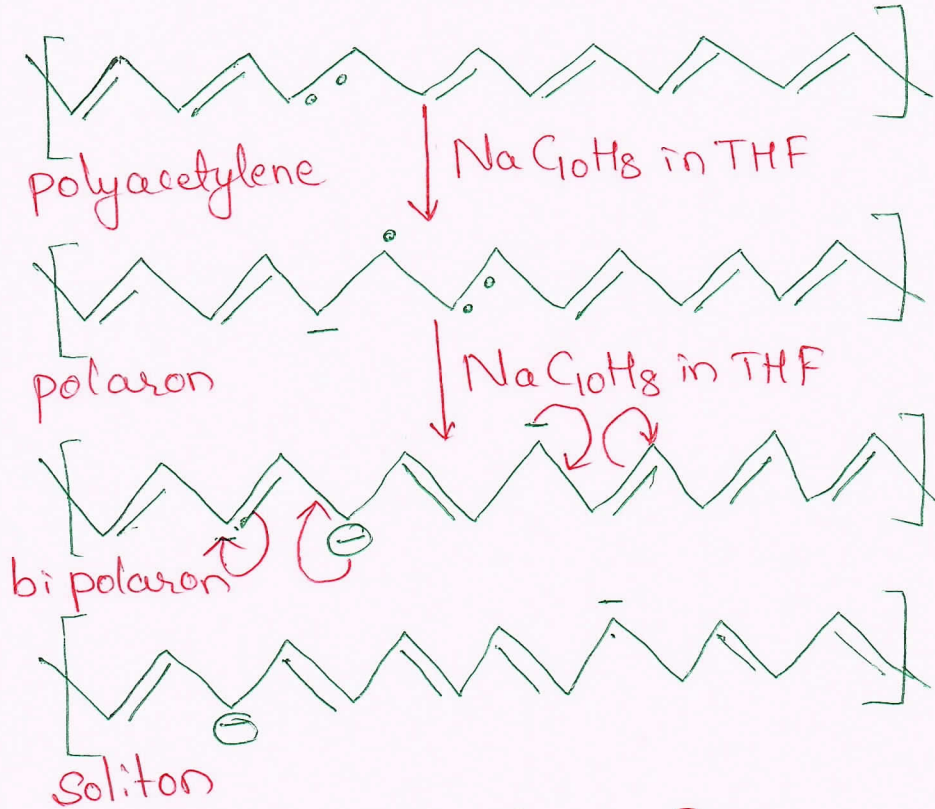 polyacetylene
NaC10H8 in THF
polaron
NaC10H8 in THF
bipolaron
soliton